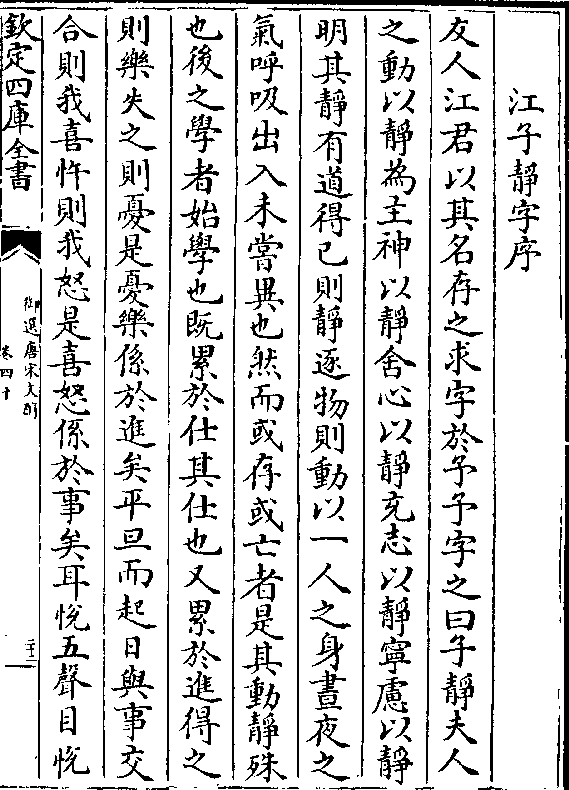 江子靜字序
友人江君以其名存之求字於予予字之曰子靜夫人
之動以靜為主神以靜舍心以靜充志以靜寧慮以靜
明其靜有道得已則靜逐物則動以一人之身晝夜之
氣呼吸出入未嘗異也然而或存或亡者是其動靜殊
也後之學者始學也既累於仕其仕也又累於進得之
則樂失之則憂是憂樂係於進矣平旦而起日與事交
合則我喜忤則我怒是喜怒係於事矣耳悅五聲目悅
欽定四庫全書
御選唐宋文醇
卷四十
二十三